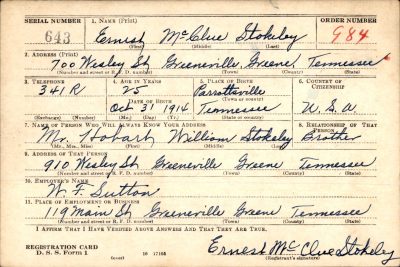 SERIAL NUMBER 1. NAME (Print) ORDER NUMBER
643 Ernest McClue Stokeley 984
(First) (Middle) (Last)
2. ADDRESS (Print)
700 Wesley St Greeneville Greene Tennessee
(Number and street or R. F. D. number) (Town) (County) (State)
3. TELEPHONE 4. AGE IN YEARS 5. PLACE OF BIRTH 6. COUNTRY OF CITIZENSHIP
341R 25 Parrottsville
(Town or county)
DATE OF BIRTH
Oct 31 1914 Tennessee U.S.A.
(Exchange) (Number) (Mo.) (Day) (Yr.) (State or country)
7. NAME OF PERSON WHO WILL ALWAYS KNOW YOUR ADDRESS 8. RELATIONSHIP OF THAT PERSON
Mr. Hobart William Stokeley Brother
(Mr., Mrs., Miss) (First) (Middle) (Last)
9. ADDRESS OF THAT PERSON
910 Wesley St Greeneville Greene Tennessee
(Number and street or R. F. D. number) (Town) (County) (State)
10. EMPLOYER'S NAME
W. F. Sutton
11. PLACE OF EMPLOYMENT OR BUSINESS
119 Main St Greeneville Greene Tennessee
(Number and street or R. F. D. number) (Town) (County) (State)
I AFFIRM THAT I HAVE VERIFIED ABOVE ANSWERS AND THAT THEY ARE TRUE.
REGISTRATION CARD
D. S. S. Form 1 (over) 16 17105 Ernest McClue Stokely
(Registrant's signature)